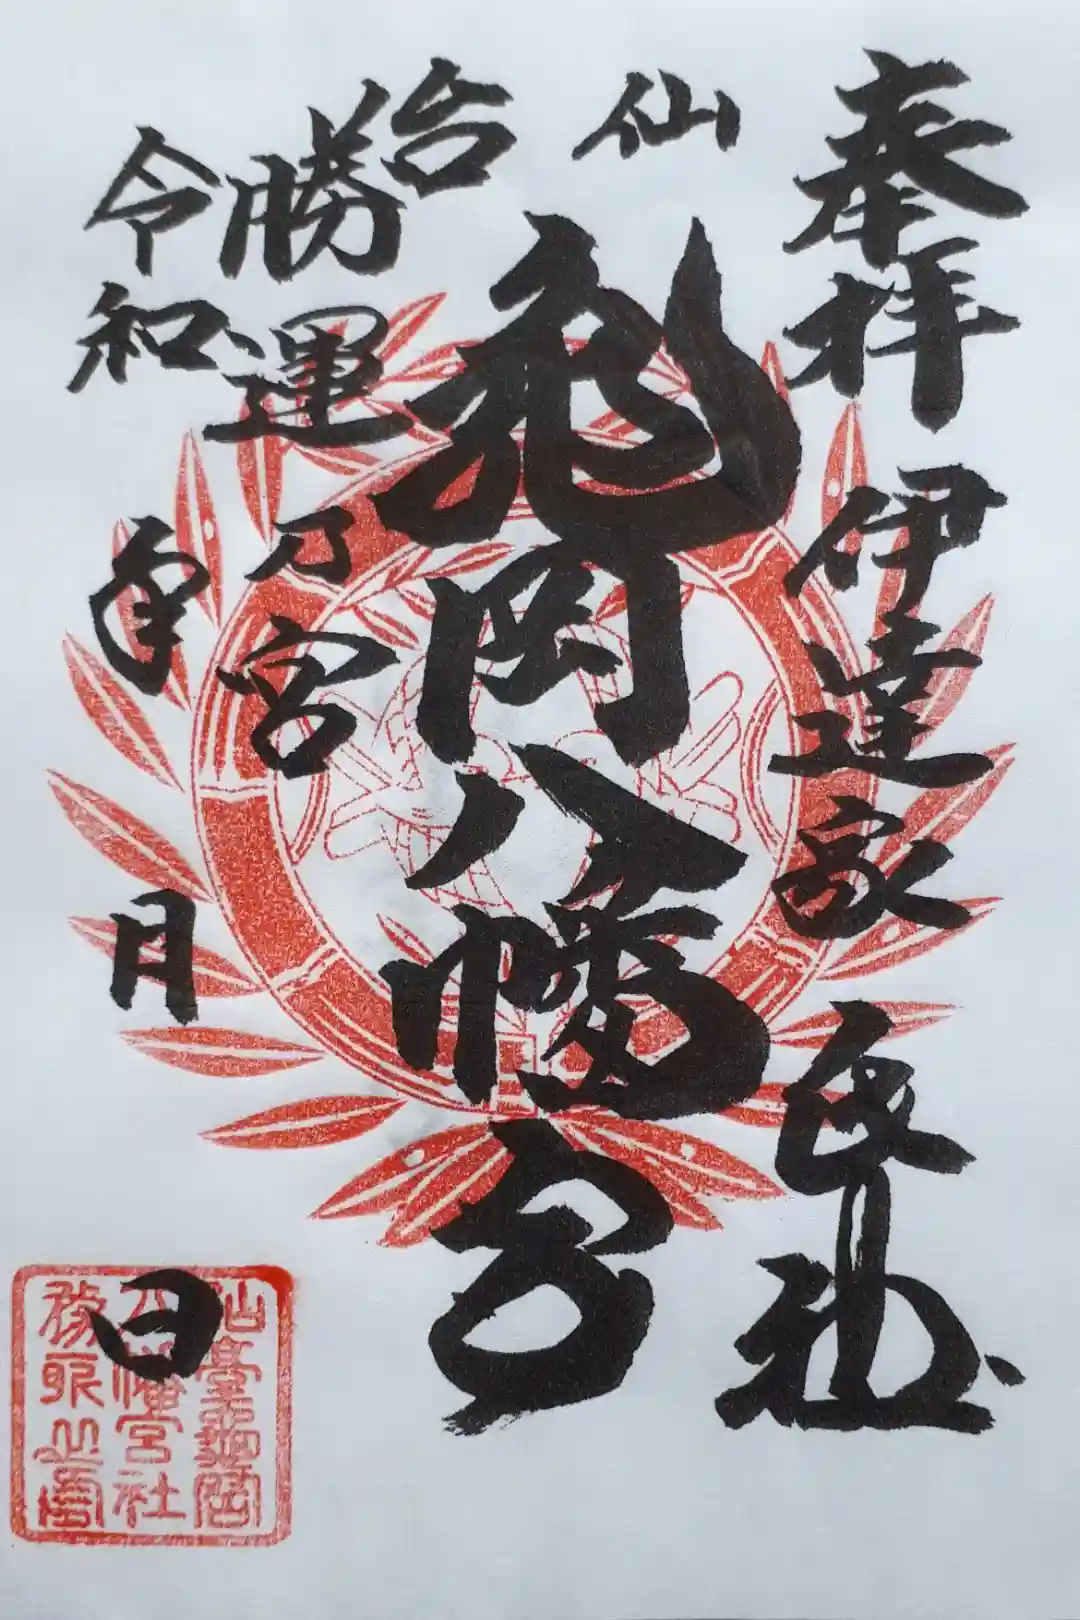 奉拝
伊達家氏神
仙台
亀岡八幡宮
勝運乃宮
令和 年 月 日
仙臺龜岡
八幡宮社
務所之印